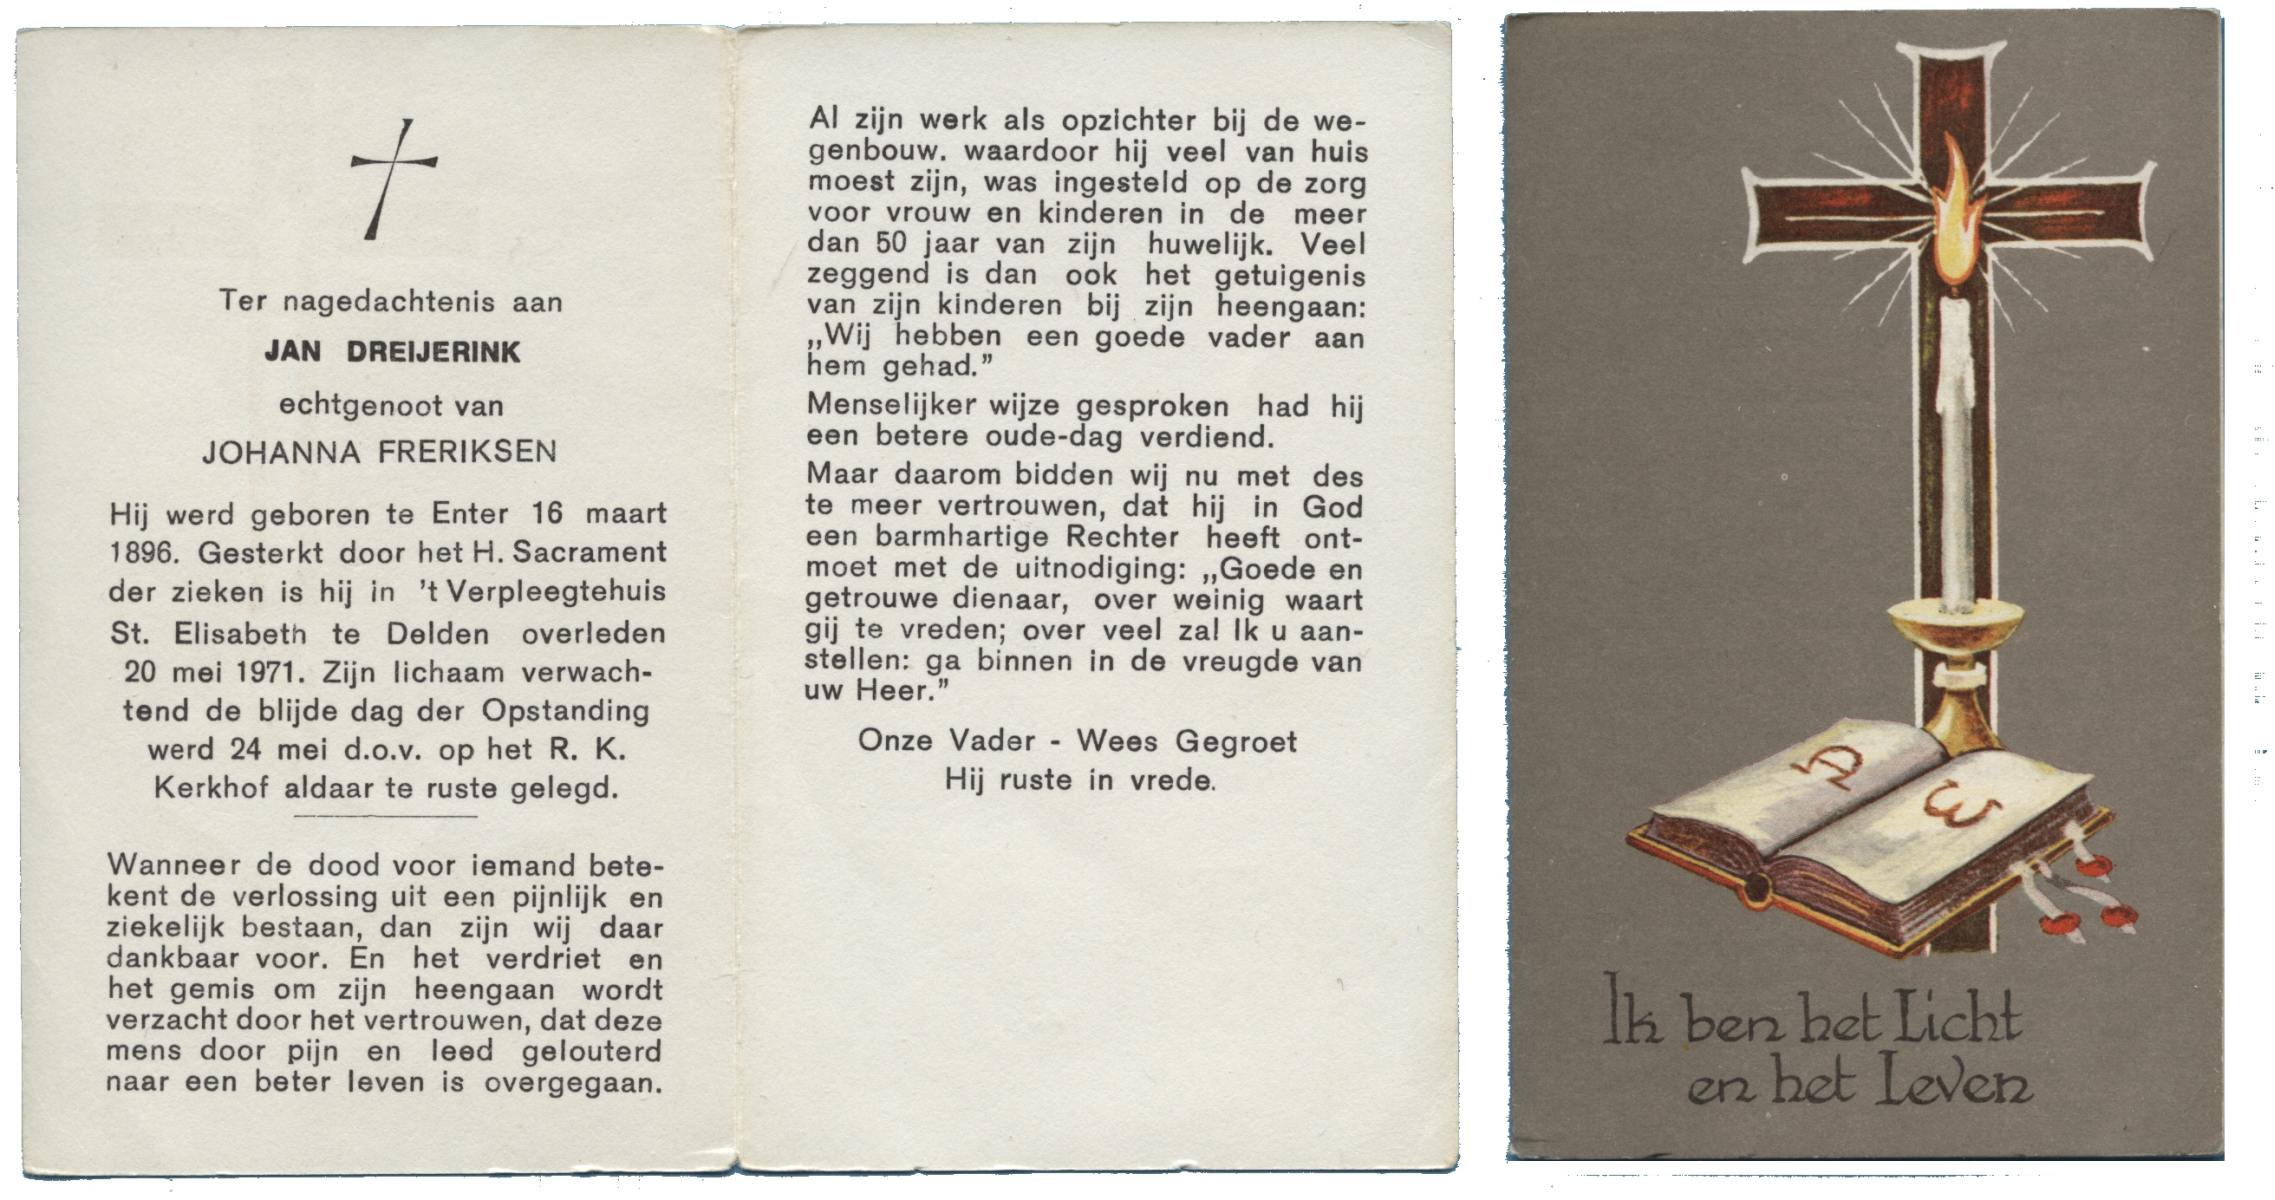 Ter nagedachtenis aan
JAN DREIJERINK
echtgenoot van
JOHANNA FRERIKSEN
Hij werd geboren te Enter 16 maart
1896. Gesterkt door het H. Sacrament
der zieken is hij in 't Verpleegtehuis
St. Elisabeth te Delden overleden
20 mei 1971. Zijn lichaam verwach-
tend de blijde dag der Opstanding
werd 24 mei d.o.v. op het R. K.
Kerkhof aldaar te ruste gelegd.
Wanneer de dood voor iemand bete-
kent de verlossing uit een pijnlijk en
ziekelijk bestaan, dan zijn wij daar
dankbaar voor. En het verdriet en
het gemis om zijn heengaan wordt
verzacht door het vertrouwen, dat deze
mens door pijn en leed gelouterd
naar een beter leven is overgegaan.
Al zijn werk als opzichter bij de we-
genbouw. waardoor hij veel van huis
moest zijn, was ingesteld op de zorg
voor vrouw en kinderen in de meer
dan 50 jaar van zijn huwelijk. Veel
zeggend is dan ook het getuigenis
van zijn kinderen bij zijn heengaan:
„Wij hebben een goede vader aan
hem gehad.”
Menselijker wijze gesproken had hij
een betere oude-dag verdiend.
Maar daarom bidden wij nu met des
te meer vertrouwen, dat hij in God
een barmhartige Rechter heeft ont-
moet met de uitnodiging: „Goede en
getrouwe dienaar, over weinig waart
gij te vreden; over veel zal Ik u aan-
stellen: ga binnen in de vreugde van
uw Heer.”
Onze Vader - Wees Gegroet
Hij ruste in vrede.
A ω
Ik ben het Licht
en het Leven